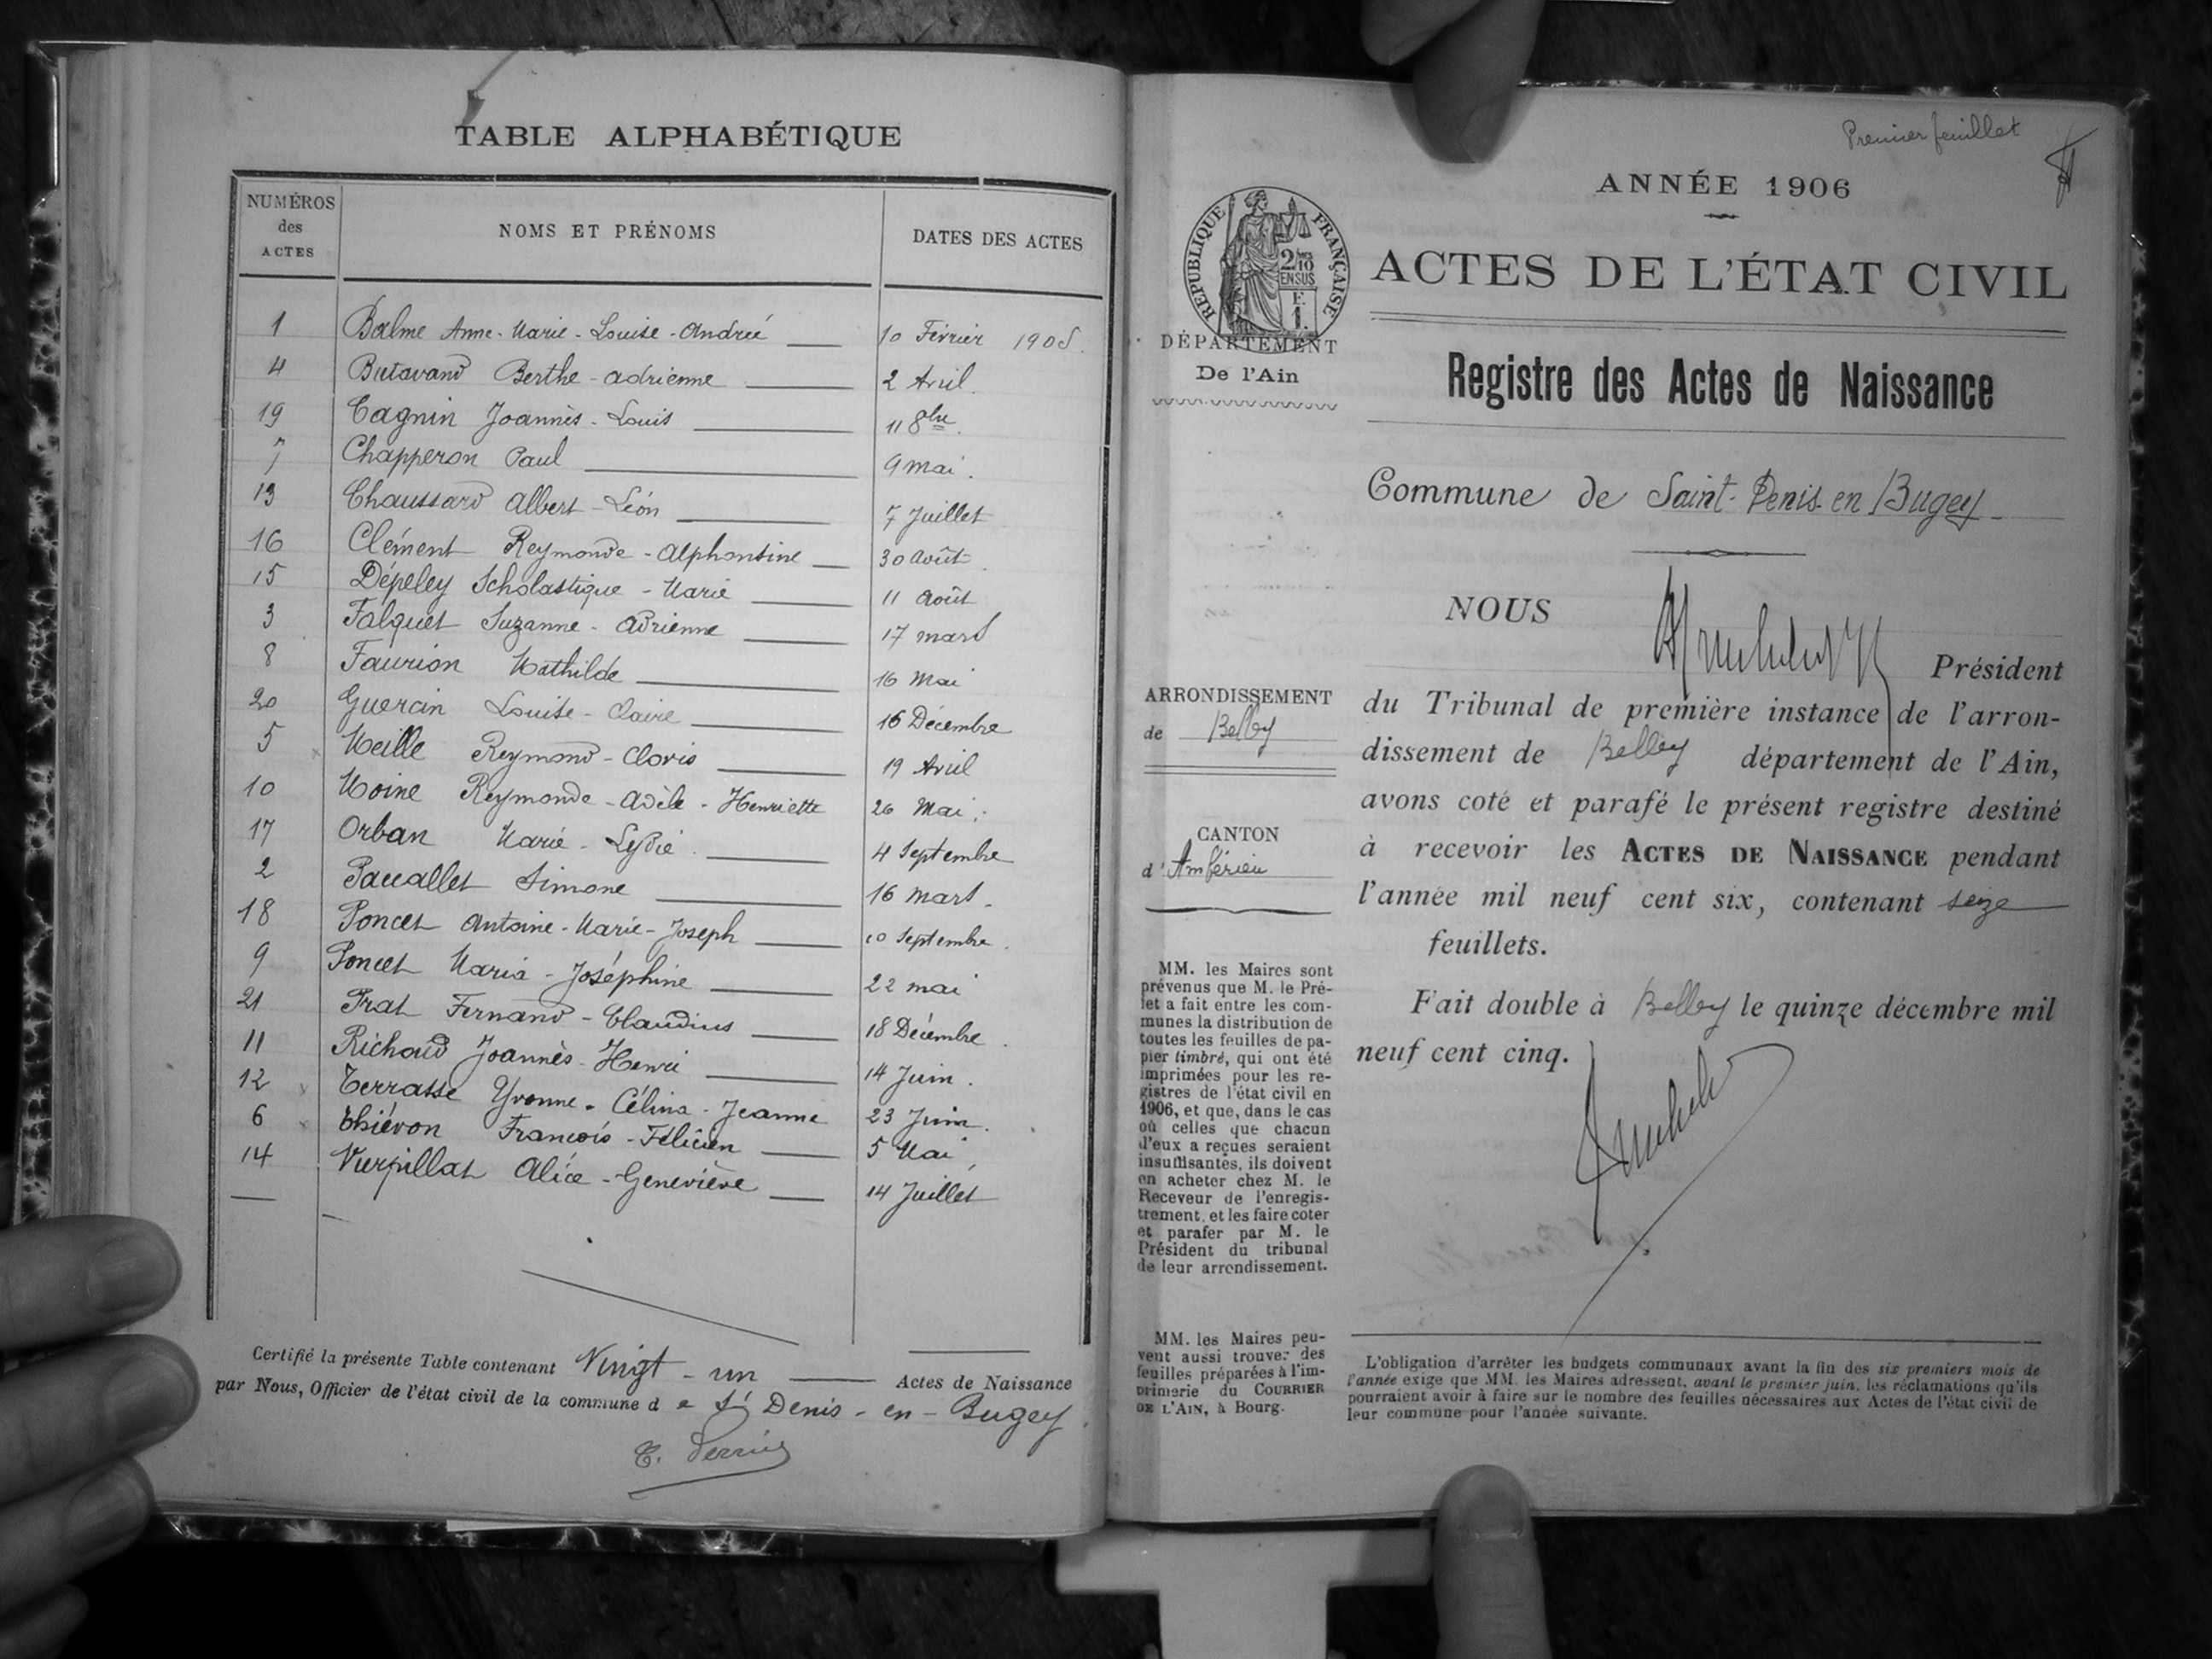 TABLE ALPHABÉTIQUE
NUMÉROS des ACTES NOMS ET PRÉNOMS DATES DES ACTES
1 Balme Anne-Marie-Louise-Andrée 10 Février 1905.
4 Butavand Berthe-Adrienne 2 Avril
19 Cagnin Joannès-Louis 11 8bre
7 Chapperon Paul 9 mai.
13 Chaussard Albert-Léon 7 Juillet
16 Clément Reymonde-Alphonsine 30 Août
15 Dépeley Scholastique-Marie 11 Août
3 Falquet Suzanne-Adrienne 17 mars
8 Faurion Mathilde 16 Mai
20 Guercin Louise-Claire 16 Décembre
5 Meille Reymond-Clovis 19 Avril
10 Moine Reymonde-Adèle-Henriette 26 Mai
17 Orban Marie-Lydie 4 Septembre
2 Paccallet Simone 16 mars
18 Poncet Antoine-Marie-Joseph 10 Septembre.
9 Poncet Maria-Joséphine 22 mai
21 Prat Fernand-Claudius 18 Décembre.
11 Richard Joannès-Henri 14 Juin.
12 Terrasse Yvonne-Célina-Jeanne 23 Juin.
6 Thiévon François-Félicien 5 Mai
14 Vurpillat Alice-Geneviève 14 Juillet
Certifié la présente Table contenant Vingt-un Actes de Naissance
par Nous, Officier de l'état civil de la commune de St Denis-en-Bugey.
Premier feuillet
ANNÉE 1906
RÉPUBLIQUE FRANÇAISE
2/10 EN SUS
F. 1.
ACTES DE L'ÉTAT CIVIL
DÉPARTEMENT
De l'Ain
Registre des Actes de Naissance
Commune de Saint-Denis-en Bugey
NOUS
Président
du Tribunal de première instance de l'arron-
dissement de Belley département de l'Ain,
avons coté et parafé le présent registre destiné
à recevoir les ACTES DE NAISSANCE pendant
l'année mil neuf cent six, contenant seize
feuillets.
Fait double à Belley le quinze décembre mil
neuf cent cinq.
ARRONDISSEMENT
de Belley
CANTON
d'Ambérieu
MM. les Maires sont
prévenus que M. le Pré-
fet a fait entre les com-
munes la distribution de
toutes les feuilles de pa-
pier timbré, qui ont été
imprimées pour les re-
gistres de l'état civil en
1906, et que, dans le cas
où celles que chacun
d'eux a reçues seraient
insuffisantes, ils doivent
en acheter chez M. le
Receveur de l'enregis-
trement, et les faire coter
et parafer par M. le
Président du tribunal
de leur arrondissement.
MM. les Maires peu-
vent aussi trouver des
feuilles préparées à l'im-
primerie du COURRIER
DE L'AIN, à Bourg.
L'obligation d'arrêter les budgets communaux avant la fin des six premiers mois de
l'année exige que MM. les Maires adressent, avant le premier juin, les réclamations qu'ils
pourraient avoir à faire sur le nombre des feuilles nécessaires aux Actes de l'état civil de
leur commune pour l'année suivante.